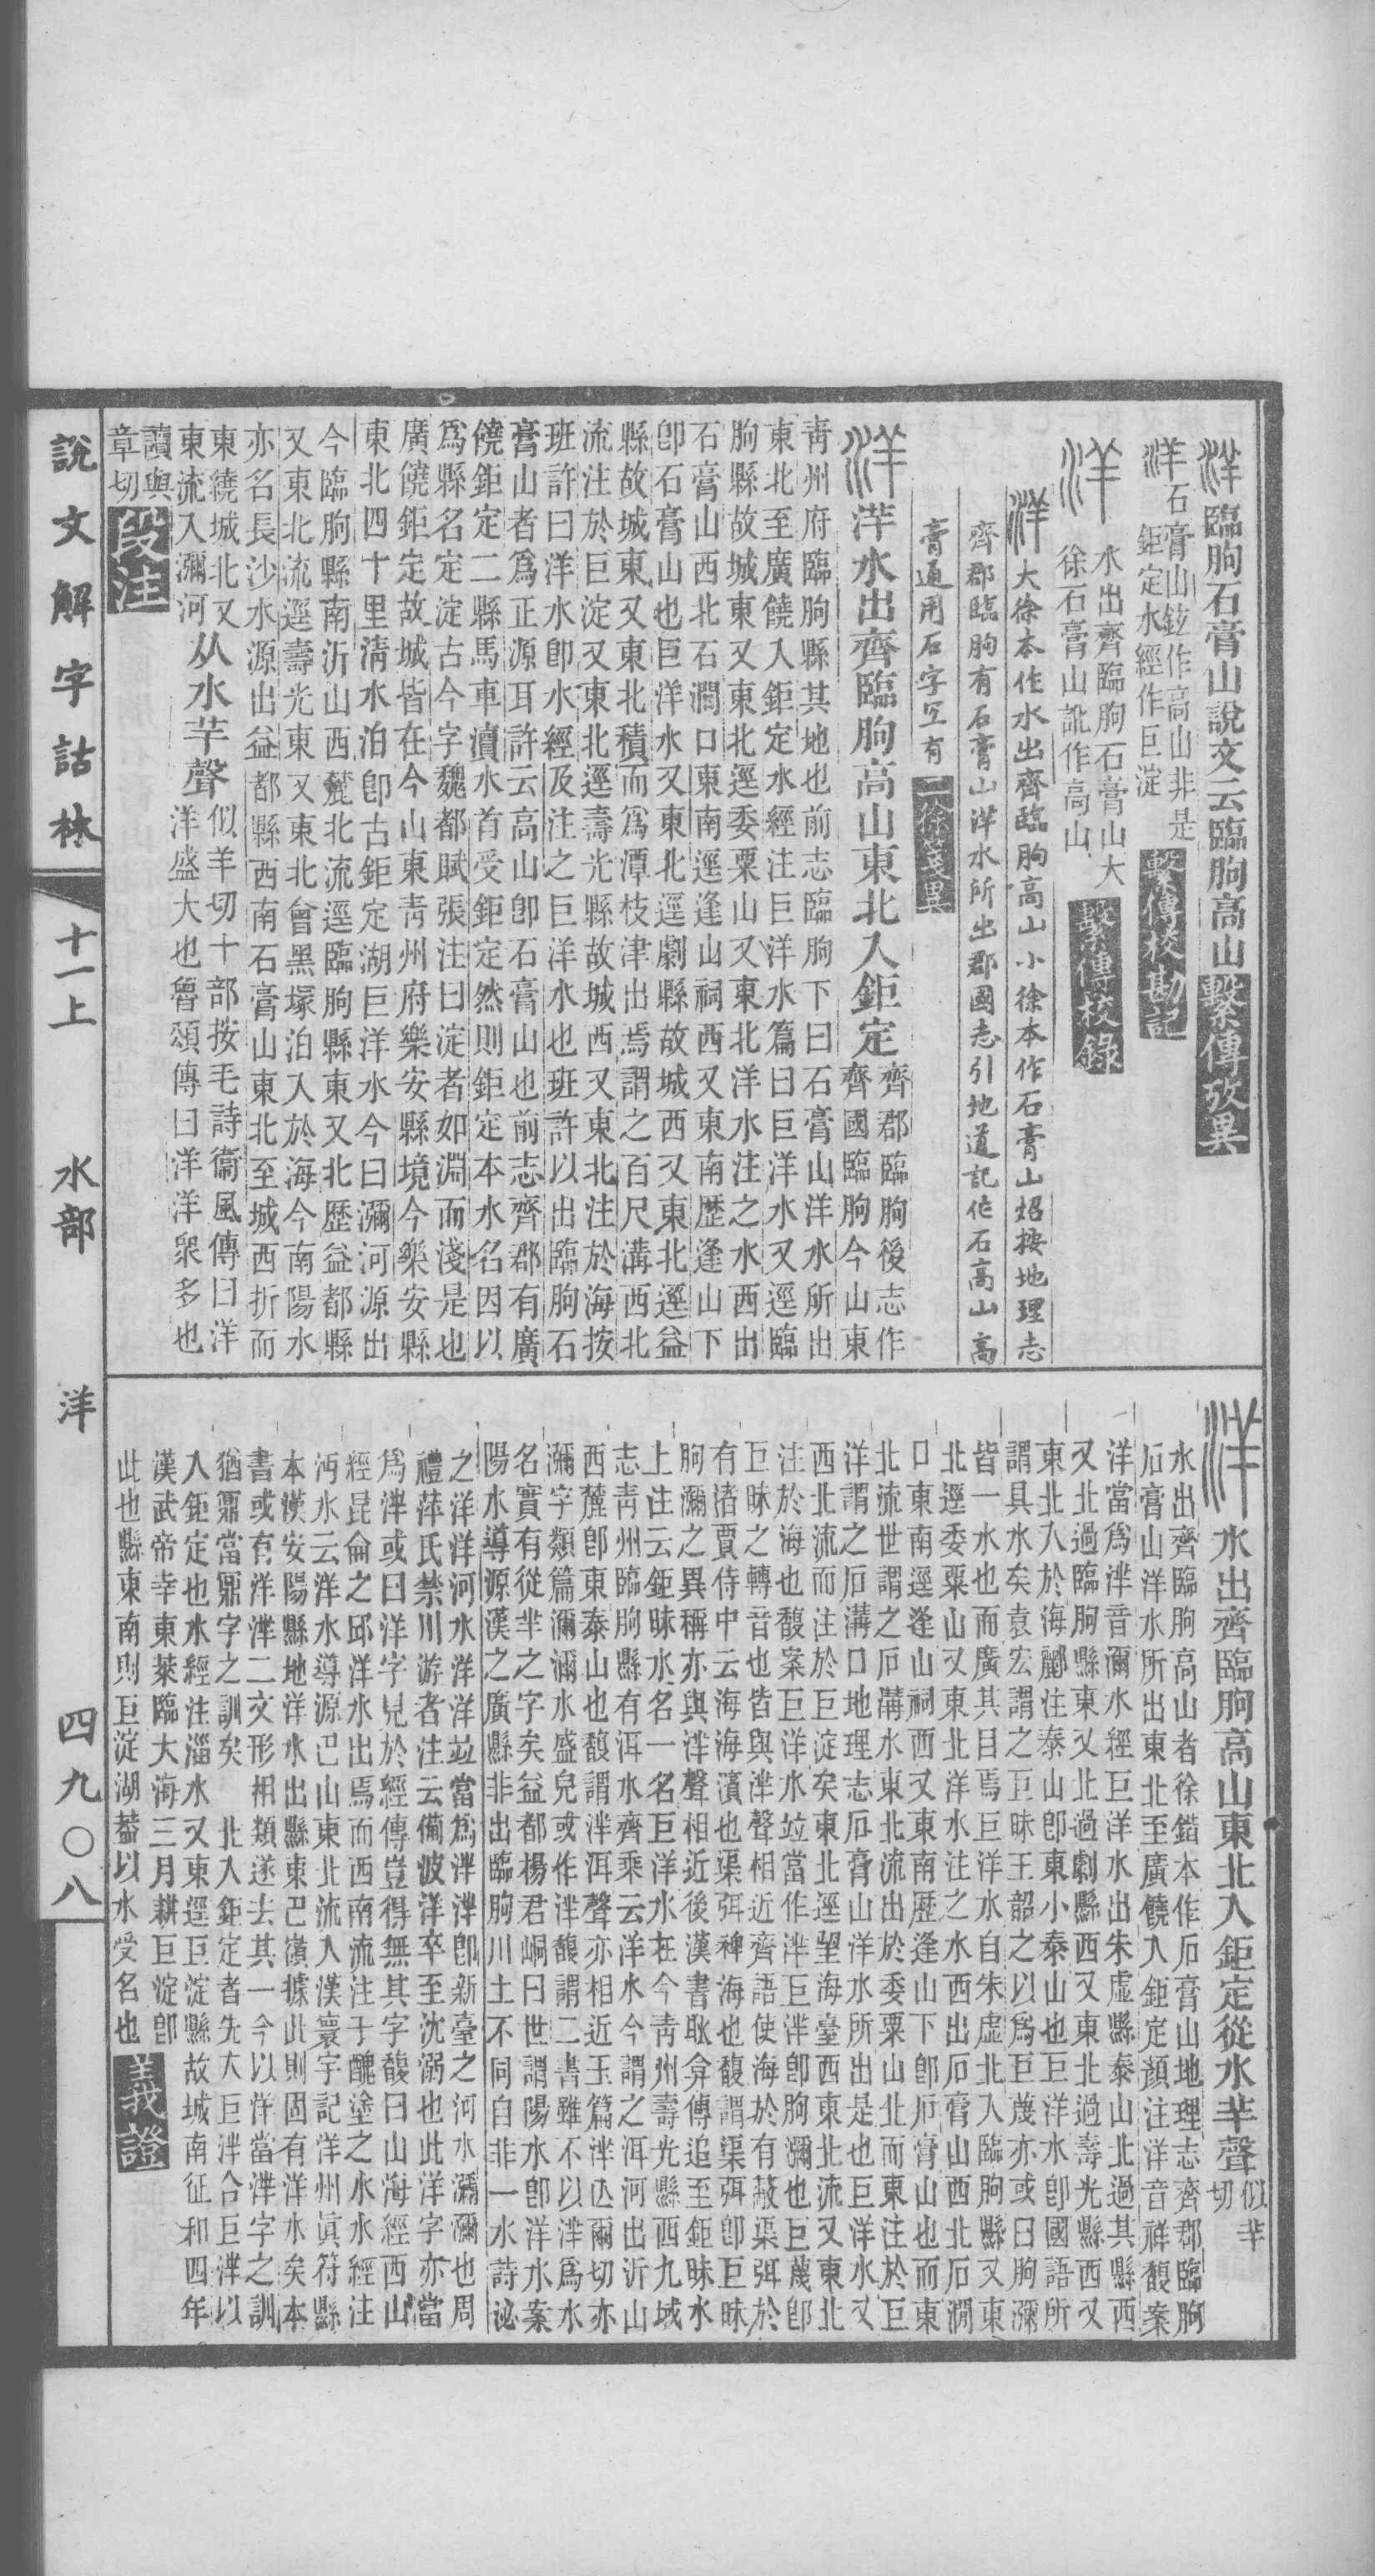 洋臨朐石膏山說文云臨朐高山繫傳攷異
洋石膏山鉉作高山非是
鉅定水經作巨淀繫傳校勘記
洋水出齊臨朐石膏山大
徐石膏山訛作高山繫傳校錄
洋大徐本作水出齊臨朐高山小徐本作石膏山炤按地理志
齊郡臨朐有石膏山洋水所出郡國志引地道記作石高山高
膏通用石字宐有二徐箋異
洋洋水出齊臨朐高山東北入鉅定齊郡臨朐後志作
齊國臨朐今山東
青州府臨朐縣其地也前志臨朐下曰石膏山洋水所出
東北至廣饒入鉅定水經注巨洋水篇曰巨洋水又逕臨
朐縣故城東又東北逕委粟山又東北洋水注之水西出
石膏山西北石澗口東南逕逢山祠西又東南歷逢山下
卽石膏山也巨洋水又東北逕劇縣故城西又東北逕益
縣故城東又東北積而爲潭枝津出焉謂之百尺溝西北
流注於巨淀又東北逕壽光縣故城西又東北注於海按
班許曰洋水卽水經及注之巨洋水也班許以出臨朐石
膏山者爲正源耳許云高山卽石膏山也前志齊郡有廣
饒鉅定二縣馬車瀆水首受鉅定然則鉅定本水名因以
爲縣名定淀古今字魏都賦張注曰淀者如淵而淺是也
廣饒鉅定故城皆在今山東青州府樂安縣境今樂安縣
東北四十里淸水泊卽古鉅定湖巨洋水今曰瀰河源出
今臨朐縣南沂山西麓北流逕臨朐縣東又北歷益都縣
又東北流逕壽光東又東北會黑塚泊入於海今南陽水
亦名長沙水源出益都縣西南石膏山東北至城西折而
東繞城北又
東流入瀰河从水羊聲似羊切十部按毛詩衞風傳曰洋
洋盛大也魯頌傳曰洋洋衆多也
讀與
章切段注
洋水出齊臨朐高山東北入鉅定從水羊聲似羊
切
水出齊臨朐高山者徐鍇本作石膏山地理志齊郡臨朐
石膏山洋水所出東北至廣饒入鉅定顏注洋音祥馥案
洋當爲㳽音瀰水經巨洋水出朱虛縣泰山北過其縣西
又北過臨朐縣東又北過劇縣西又東北過壽光縣西又
東北入於海酈注泰山卽東小泰山也巨洋水卽國語所
謂具水矣袁宏謂之巨昧王韶之以爲巨蔑亦或曰朐瀰
皆一水也而廣其目焉巨洋水自朱虛北入臨朐縣又東
北逕委粟山又東北洋水注之水西出石膏山西北石澗
口東南逕逢山祠西又東南歷逢山下卽石膏山也而東
北流世謂之石溝水東北流出於委粟山北而東注於巨
洋謂之石溝口地理志石膏山洋水所出是也巨洋水又
西北流而注於巨淀矣東北逕望海臺西東北流又東北
注於海也馥案巨洋水竝當作㳽巨㳽卽朐瀰也巨蔑卽
巨昧之轉音也皆與㳽聲相近齊語使海於有蔽渠弭於
有渚賈侍中云海海濱也渠弭裨海也馥謂渠弭卽巨昧
朐瀰之異稱亦與㳽聲相近後漢書耿弇傳追至鉅昧水
上注云鉅昧水名一名巨洋水在今青州壽光縣西九域
志青州臨朐縣有洱水齊乘云洋水今謂之洱河出沂山
西麓卽東泰山也馥謂㳽洱聲亦相近玉篇㳽亾爾切亦
瀰字類篇瀰瀰水盛皃或作㳽馥謂二書雖不以㳽爲水
名實有從羋之字矣益都楊君峒曰世謂陽水卽洋水案
陽水導源漢之廣縣非出臨朐川土不同自非一水詩泌
之洋洋河水洋洋竝當爲㳽㳽卽新臺之河水瀰瀰也周
禮萍氏禁川游者注云備波洋卒至沈溺也此洋字亦當
爲㳽或曰洋字見於經傳豈得無其字馥曰山海經西山
經昆侖之邱洋水出焉而西南流注于醜塗之水水經注
沔水云洋水導源巴山東北流入漢寰宇記洋州眞符縣
本漢安陽縣地洋水出縣東巴嶺據此則固有洋水矣本
書或有洋㳽二文形相類遂去其一今以洋當㳽字之訓
猶鼏當鼏字之訓矣　北入鉅定者先大巨㳽合巨㳽以
入鉅定也水經注淄水又東逕巨淀縣故城南征和四年
漢武帝幸東萊臨大海三月耕巨淀卽
此也縣東南則巨淀湖葢以水受名也義證
說文解字詁林
十一上
水部
洋
四九〇八